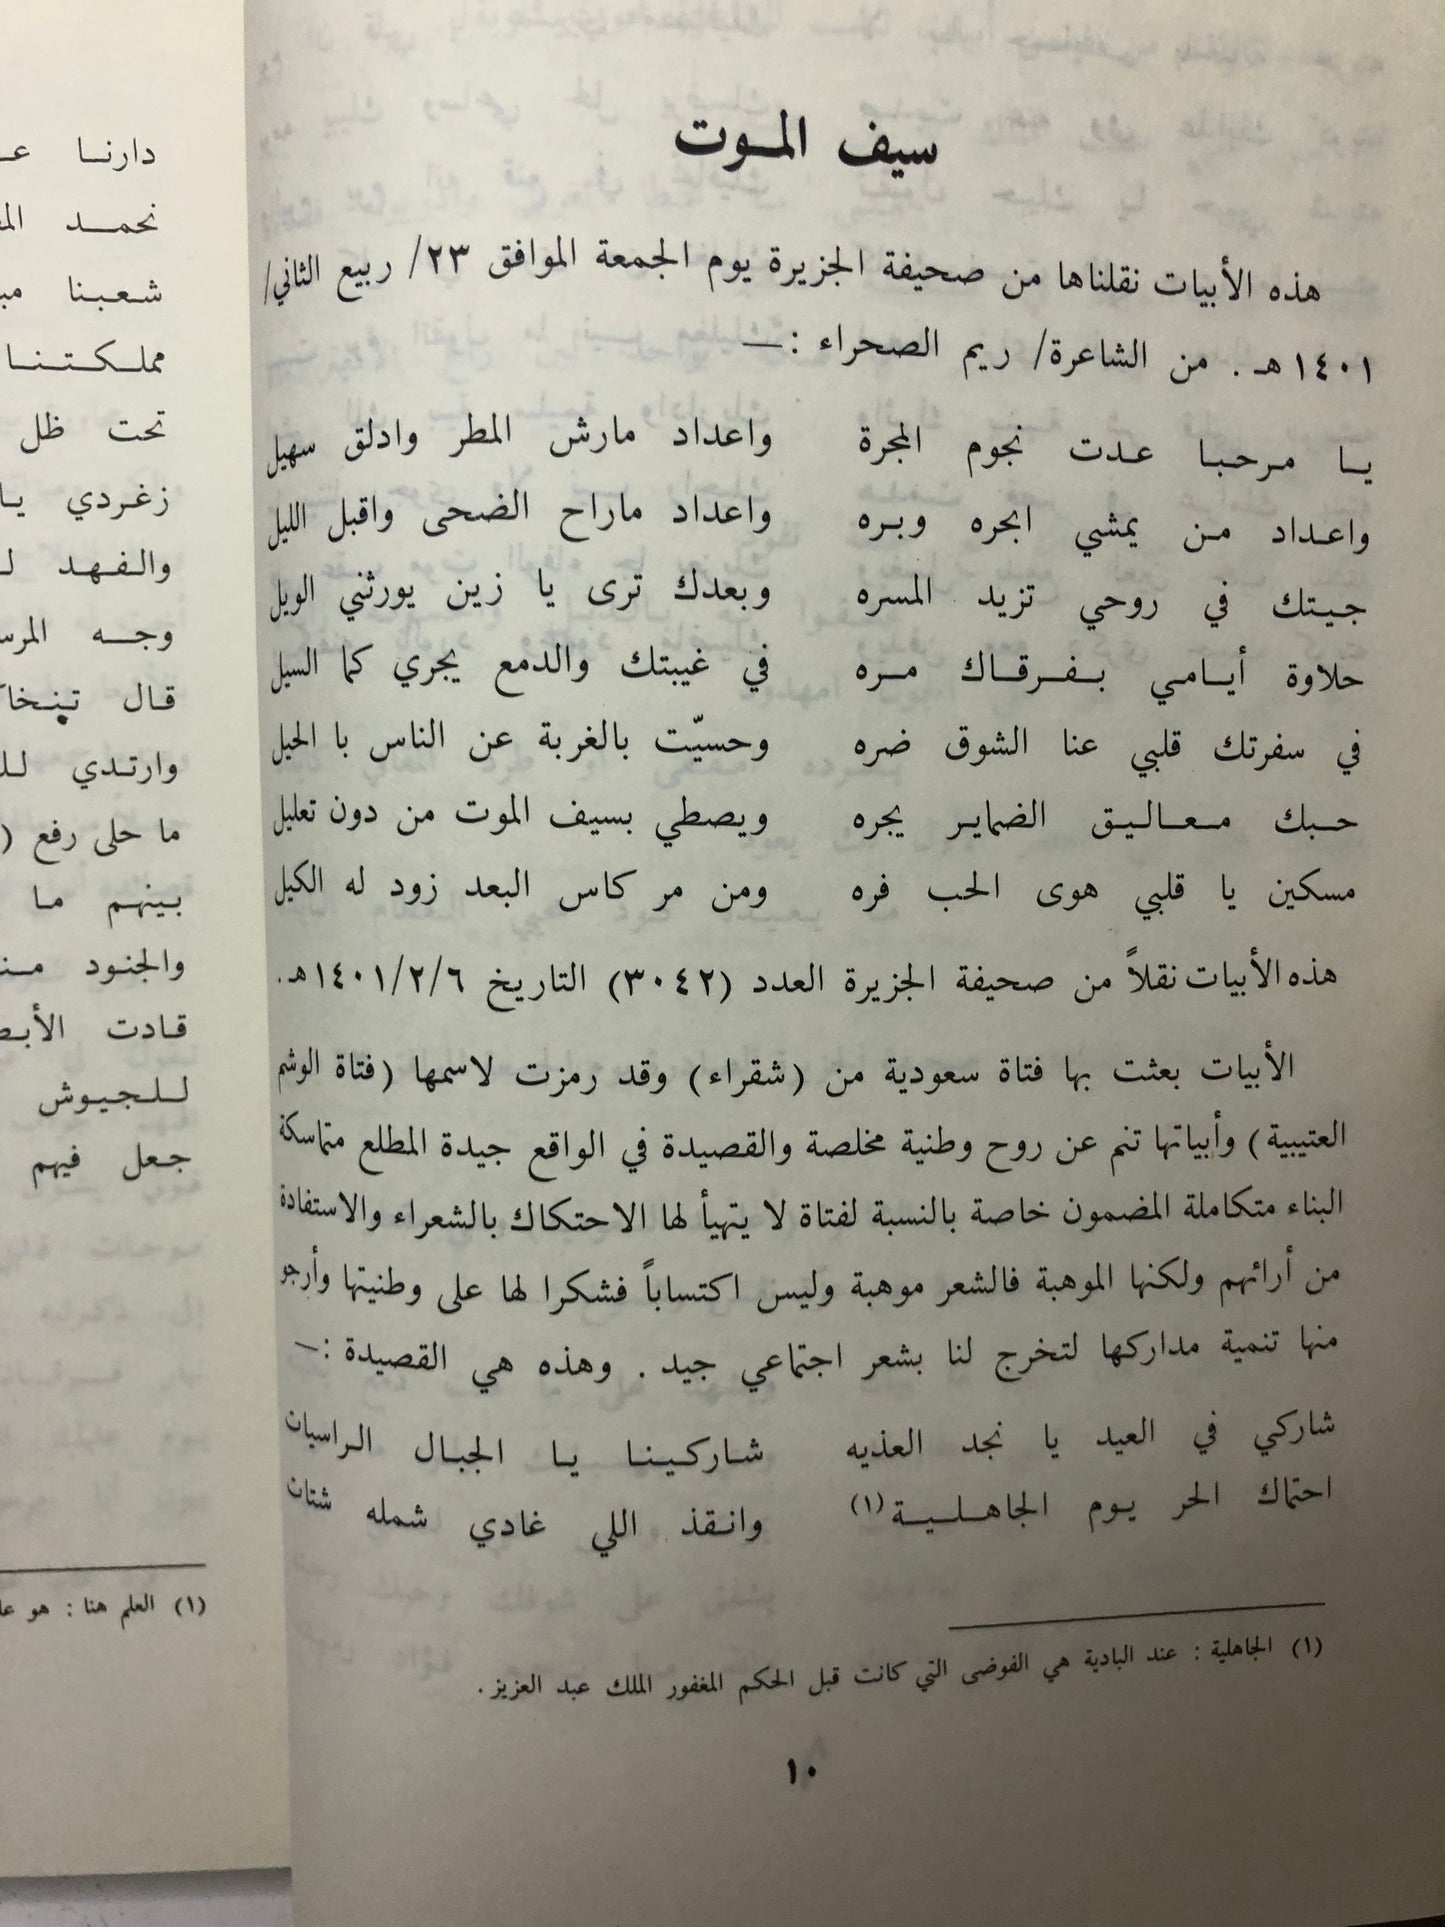 سيف الموت
هذه الأبيات نقلناها من صحيفة الجزيرة يوم الجمعة الموافق ٢٣/ ربيع الثاني/
١٤٠١ هـ . من الشاعرة/ ريم الصحراء :—
يا مرحبا عدت نجوم المجرة واعداد مارش المطر وادلق سهيل
واعداد من يمشي ابحره وبره واعداد ماراح الضحى واقبل الليل
جيتك في روحي تزيد المسره وبعدك ترى يا زين يورثني الويل
حلاوة أيامي بفرقاك مره في غيبتك والدمع يجري كما السيل
في سفرتك قلبي عنا الشوق ضره وحسيّت بالغربة عن الناس با الحيل
حبك معاليق الضماير يجره ويصطي بسيف الموت من دون تعليل
مسكين يا قلبي هوى الحب فره ومن مر كاس البعد زود له الكيل
هذه الأبيات نقلاً من صحيفة الجزيرة العدد (٣٠٤٢) التاريخ ١٤٠١/٢/٦هـ.
الأبيات بعثت بها فتاة سعودية من (شقراء) وقد رمزت لاسمها (فتاة الوشم
العتيبية) وأبياتها تنم عن روح وطنية مخلصة والقصيدة في الواقع جيدة المطلع متماسكة
البناء متكاملة المضمون خاصة بالنسبة لفتاة لا يتهيأ لها الاحتكاك بالشعراء والاستفادة
من أرائهم ولكنها الموهبة فالشعر موهبة وليس اكتساباً فشكرا لها على وطنيتها وأرجو
منها تنمية مداركها لتخرج لنا بشعر اجتماعي جيد . وهذه هي القصيدة :—
شاركي في العيد يا نجد العذيه شاركينا يا الجبال الراسيات
احتماك الحر يوم الجاهلية(١) وانقذ اللي غادي شمله شتات
(١) الجاهلية : عند البادية هي الفوضى التي كانت قبل الحكم المغفور الملك عبد العزيز .
١٠
دارنا
نحمد
شعبنا
مملكتنا
تحت ظل
زغردي
والفهد
وجه
قال
وارتدي
ما حلى رفع (
بينهم ما
والجنود
قادت
للجيوش
جعل فيهم
(١) العلم هنا : هو